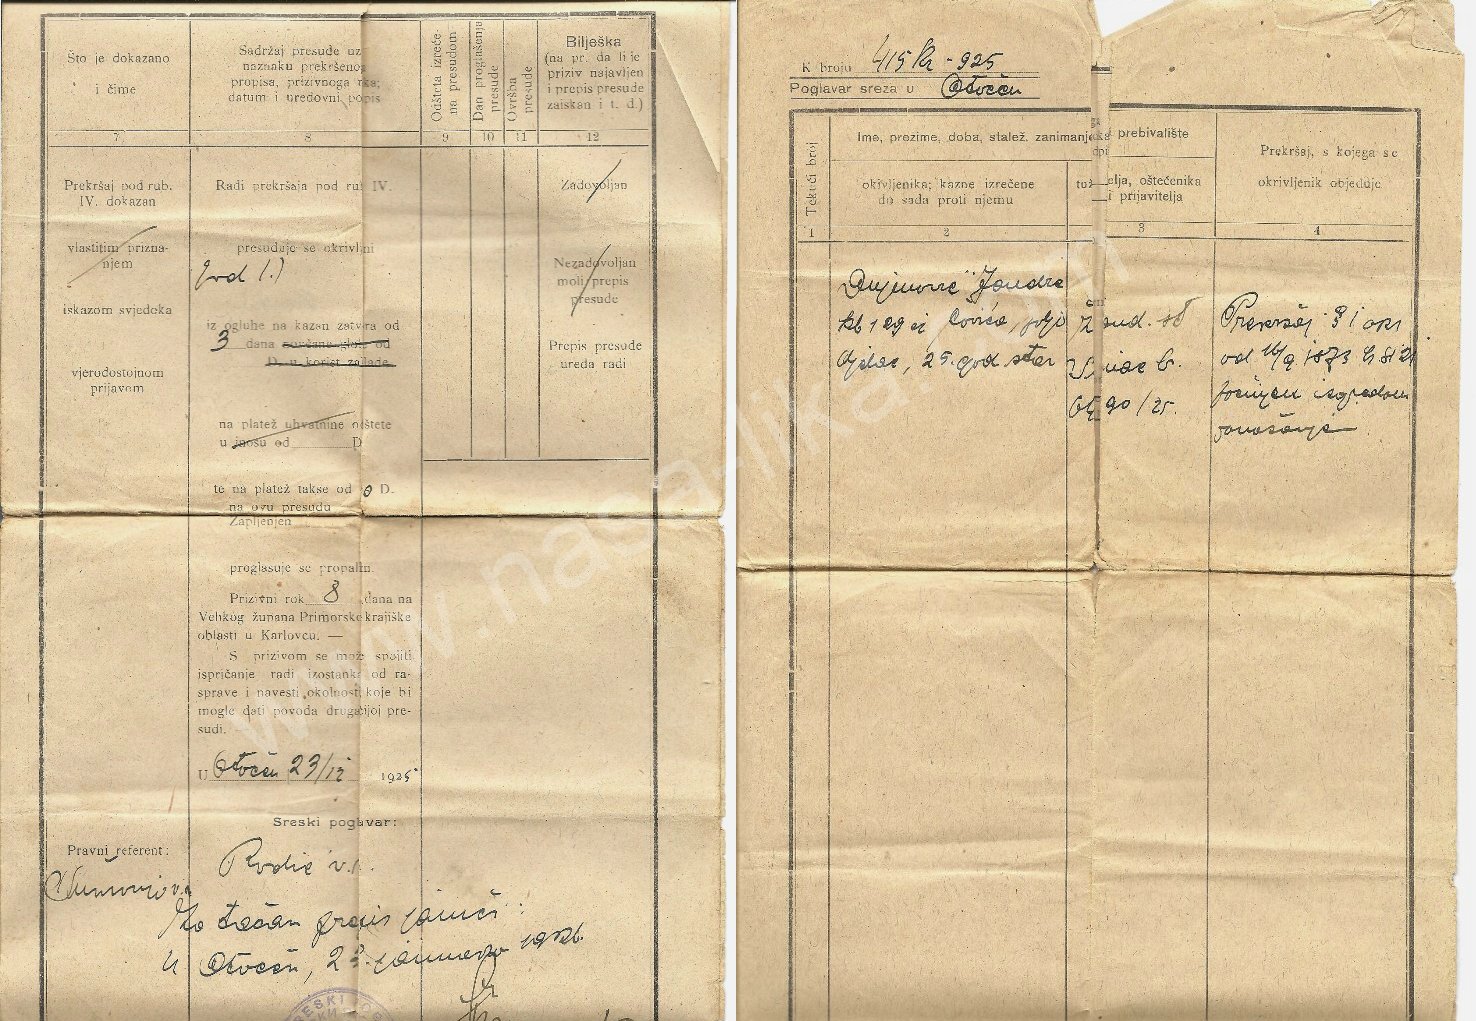 Što je dokazano
i čime
Sadržaj presude uz
naznaku prekršenog
propisa, prizivnoga
datum i uredovni popis
Odšteta izreče-
na presudom
Dan proglašenja
presude
Ovršba
presude
Bilješka
(na pr. da li je
priziv najavljen
i prepis presude
zaiskan i t. d.)
7 8 9 10 11 12
Prekršaj pod rub.
IV. dokazan
vlastitim prizna-
njem
iskazom svjedoka
vjerodostojnom
prijavom
Radi prekršaja pod rub IV.
presuđuje se okrivljni
pod 1.)
iz ogluhe na kazan zatvora od
3 dana novčane globe od
D. u korist zaklade
na platež uhvatnine odštete
u iznosu od D
te na platež takse od D.
na ovu presudu
Zaplijenjen
proglasuje se propalim.
Prizivni rok 8 dana na
Velikog župana Primorsko krajiške
oblasti u Karlovcu. —
S prizivom se može spojiti
ispričanje radi izostanka od ra-
sprave i navesti okolnost koje bi
mogle dati povoda drugačijoj pre-
sudi.
U Otočcu 23/12 1925
Sreski poglavar:
Pravni referent:
Rodić v.r.
Za točan prepis jamči:
U Otočcu, 23. januara
Zadovoljan
Nezadovoljan
moli prepis
presude
Prepis presude
ureda radi
SRESKI
K broju 415 Kr - 925
Poglavar sreza u Otočcu
Tekući broj
Ime, prezime, doba, stalež, zanimanje prebivalište
okivljenika; kazne izrečene
do sada proti njemu
tuž elja, oštećenika
i prijavitelja
Prekršaj, s kojega se
okrivljenik objeđuje
1 2 3 4
Jandre
kb 129 iz Čovića,
25. god star
Žand. st
90/25.
Prekršaj § 1
od 1873
www.nasa-lika.com